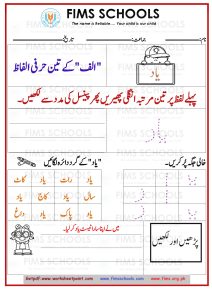 FIMS SCHOOLS
The name is Reliable ... Your child is our child
نام: جماعت: تاریخ:
"الف" کے تین حرفی الفاظ
یاد
پہلے لفظ پر تین مرتبہ انگلی پھیریں پھر پینسل کی مدد سے لکھیں۔
یاد
"یاد" کے گرد دائرہ لگائیں
خالی جگہ پُر کریں۔
یاد رات یاد کاٹ
سال یاد کاج یاد
یاد پاک یاد داغ
پڑھیں اور لکھیں
میں نے اپنا سارا
یاد کر لیا۔
FIMS SCHOOLS
www.fimschools.com
www.fims.org.pk